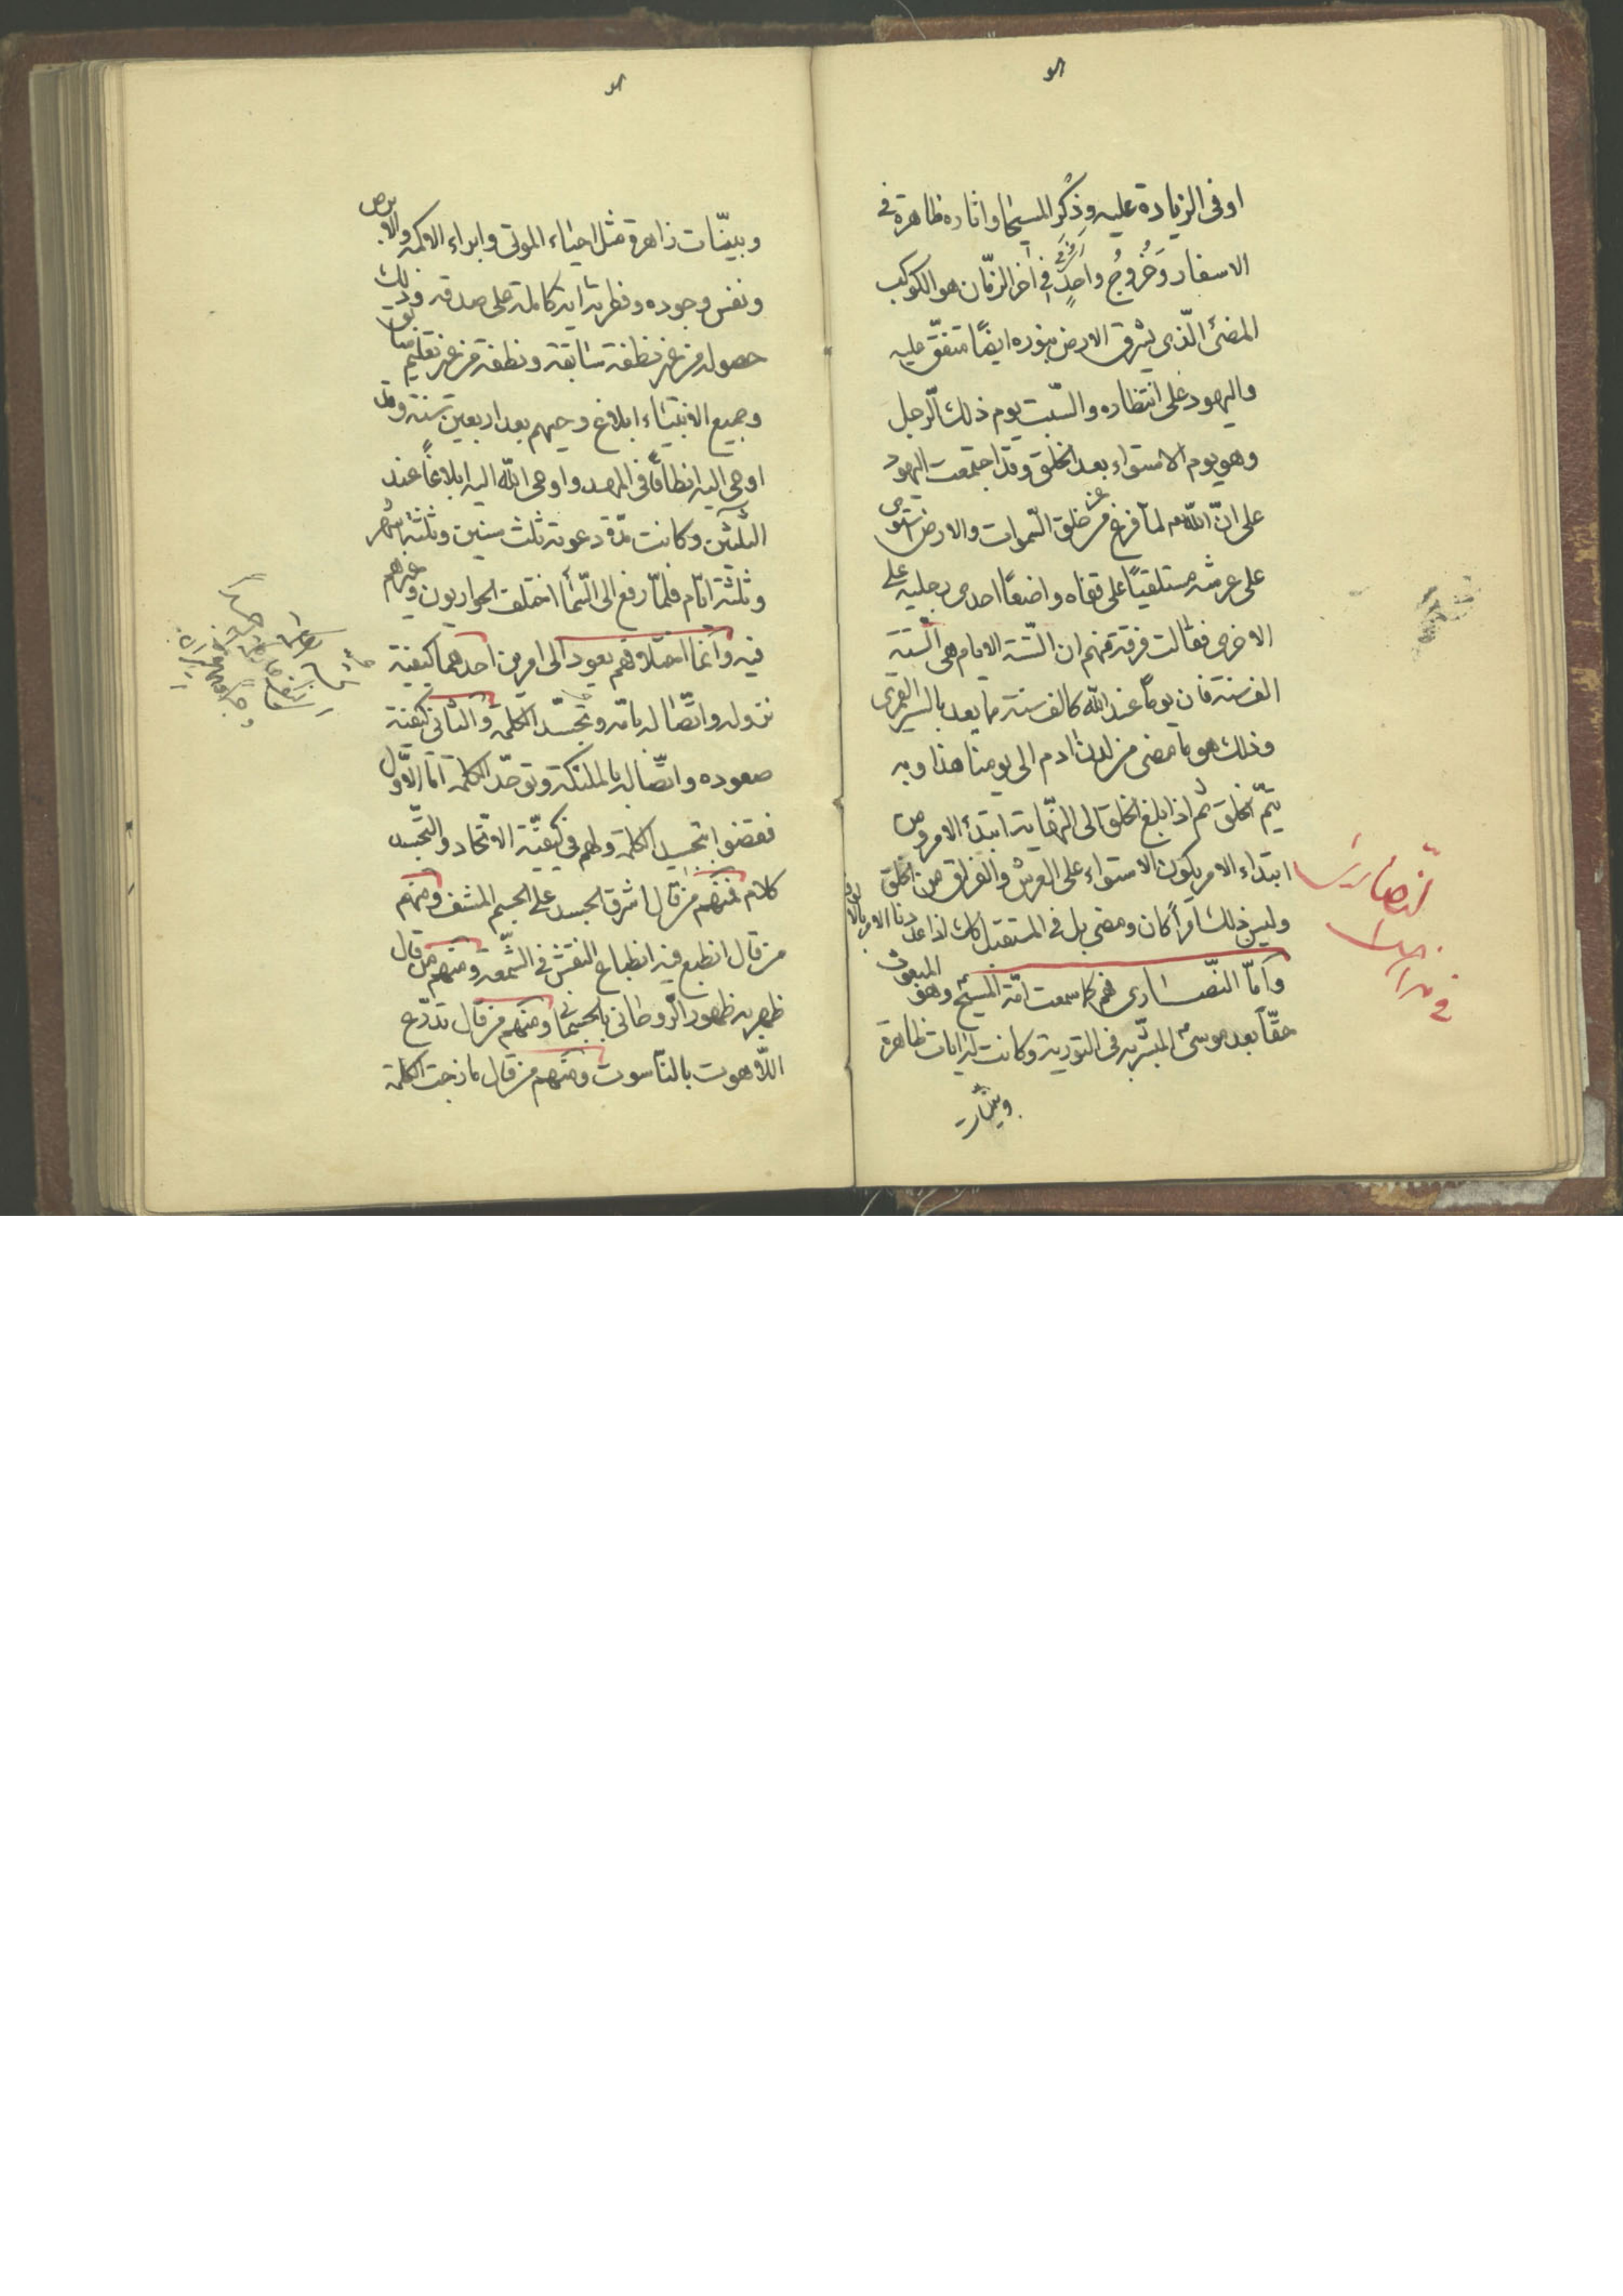 او فى الزيادة عليه وذكر المسيحا واثاره ظاهرة فى
الاسفار وخروج واحد فى اخر الزمان هو الكوكب
المضئ الذى يشرق الارض بنوره ايضا متفق عليه
واليهود على انتظاره والسبت يوم ذلك الرجل
وهو يوم الاستواء بعد الخلق وقد اجتمعت اليهود
على ان الله لما فرغ من خلق السموات والارض استوى
على عرشه مستلقيا على قفاه واضعا احدى رجليه على
الاخرى فقالت فرقة منهم ان الستة الايام هى الستة
الف سنة فان يوما عند الله كالف سنة مما يعد بالسير القمرى
وذلك هو ما مضى من لدن ادم الى يومنا هذا وبه
يتم الخلق ثم اذا بلغ الخلق الى النهاية ابتدأ الامر ومن
ابتداء الامر يكون الاستواء على العرش والفراق من الخلق
وليس ذلك امرا كان ومضى بل فى المستقبل اذا عددنا الايام بالالوف
واما النصارى فهم كما سمعت امة المسيح وهو المبعوث
حقا بعد موسى المبشر به فى التورية وكانت له ايات ظاهرة
وبينات
وبينات زاهرة مثل احياء الموتى وابراء الاكمه والابرص
ونفس وجوده وفطرته اية كاملة على صدقه وذلك
حصوله من غير نطفة سابقة ونطقه من غير تعليم سابق
وجميع الانبياء ابلاغ وحيهم بعد اربعين سنة وقد
اوحى اليه انطاقا فى المهد واوحى الله اليه ابلاغا عند
الثلثين وكانت مدة دعوته ثلث سنين وثلثة اشهر
وثلثة ايام فلما رفع الى السماء اختلف الحواريون وغيرهم
فيه وانما اختلافهم يعود الى امرين احدهما كيفية
نزوله واتصاله بامه وتجسد الكلمة والثانى كيفية
صعوده واتصاله بالملئكة وتوحد الكلمة اما الاول
فقضوا بتجسيد الكلمة ولهم فى كيفية الاتحاد والتجسد
كلام فمنهم من قال اشرق الجسد على الجسم المشف ومنهم
من قال انطبع فيه انطباع النقش فى الشمعة ومنهم من قال
ظهر به ظهور الروحانى بالجسمانى ومنهم من قال تدرع
اللاهوت بالناسوت ومنهم من قال مازجت الكلمة